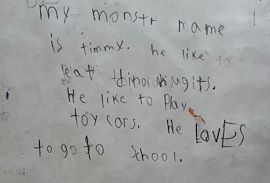 my monstr name
is timmy. he like to
eat
He like to Play
toy cars. He lovEs
to go to school.